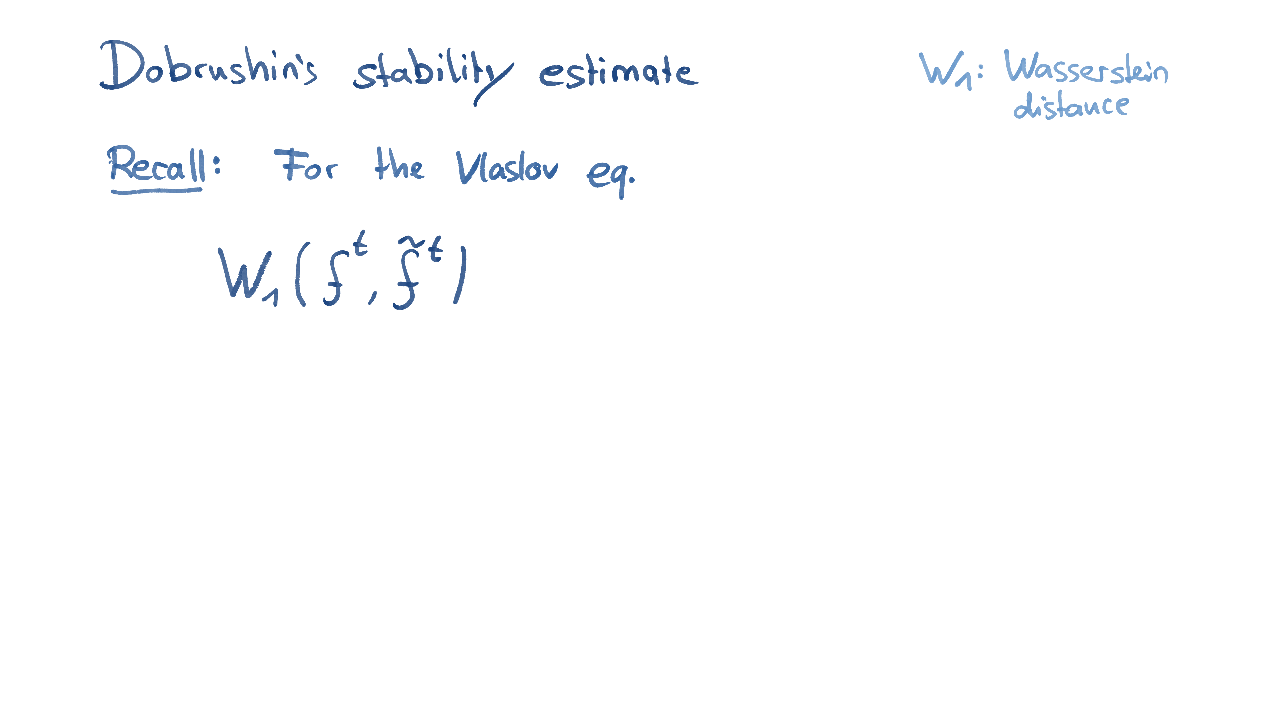 Dobrushin's stability estimate
W₁: Wasserstein
distance
Recall: For the Vlaslov eq.
W₁(fᵗ, f̃ᵗ)